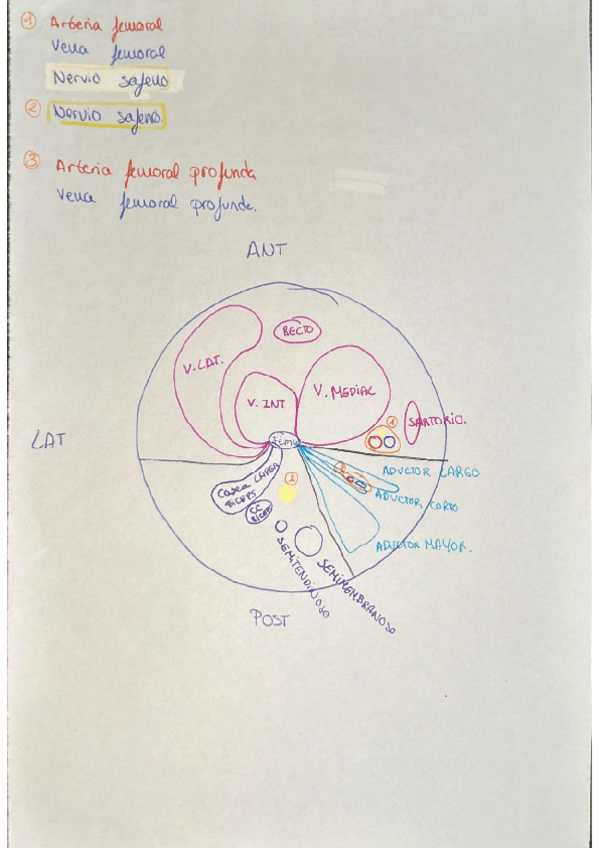 1 Arteria femoral
Vena femoral
Nervio safeno
2 Nervio safeno.
3 Arteria femoral profunda
Vena femoral profunda.
ANT
RECTO
V. LAT.
V. MEDIAL
V. INT
1
SARTORIO.
LAT
Femur
ADUCTOR LARGO
3
2
Cabeza LARGA
BICEPS
ADUCTOR CORTO
CC
BICEPS
ADUCTOR MAYOR.
SEMITENDINOSO
SEMIMEMBRANOSO
POST